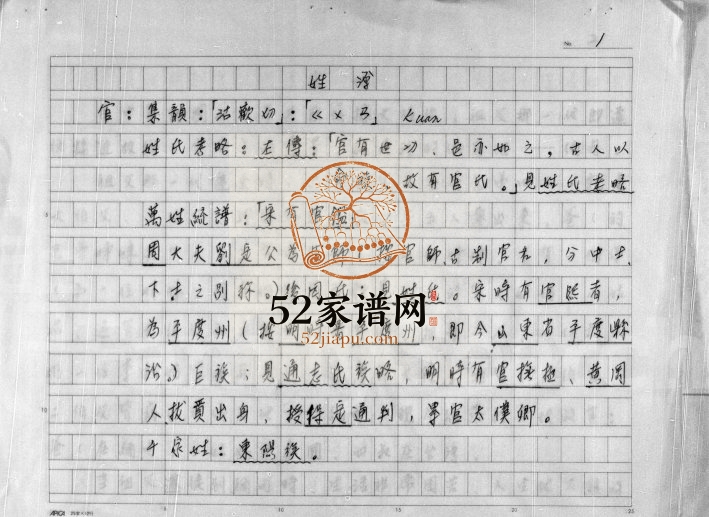 No. 1
姓源
官：集韻：「沽歡切」：「ㄍㄨㄢ」 Kuan
姓氏考略：左傳：「官有世功，是亦如之，古人以
故有官氏。」見姓氏考略
萬姓統譜：「宋有官
周大夫劉定公為官師，官師、古制官名，分中士、
下士之別称。）見姓氏。宋時有官熙者，
為平度州（按明平度州，即今山東省平度縣
治）巨族；見通志氏族略，明時有官撫極、黄岡
人拔貢出身，授保定通判，累官太僕卿。
千家姓：東陽族。
52家谱网
52jiapu.com
5 10 15 20 25
10
APICA